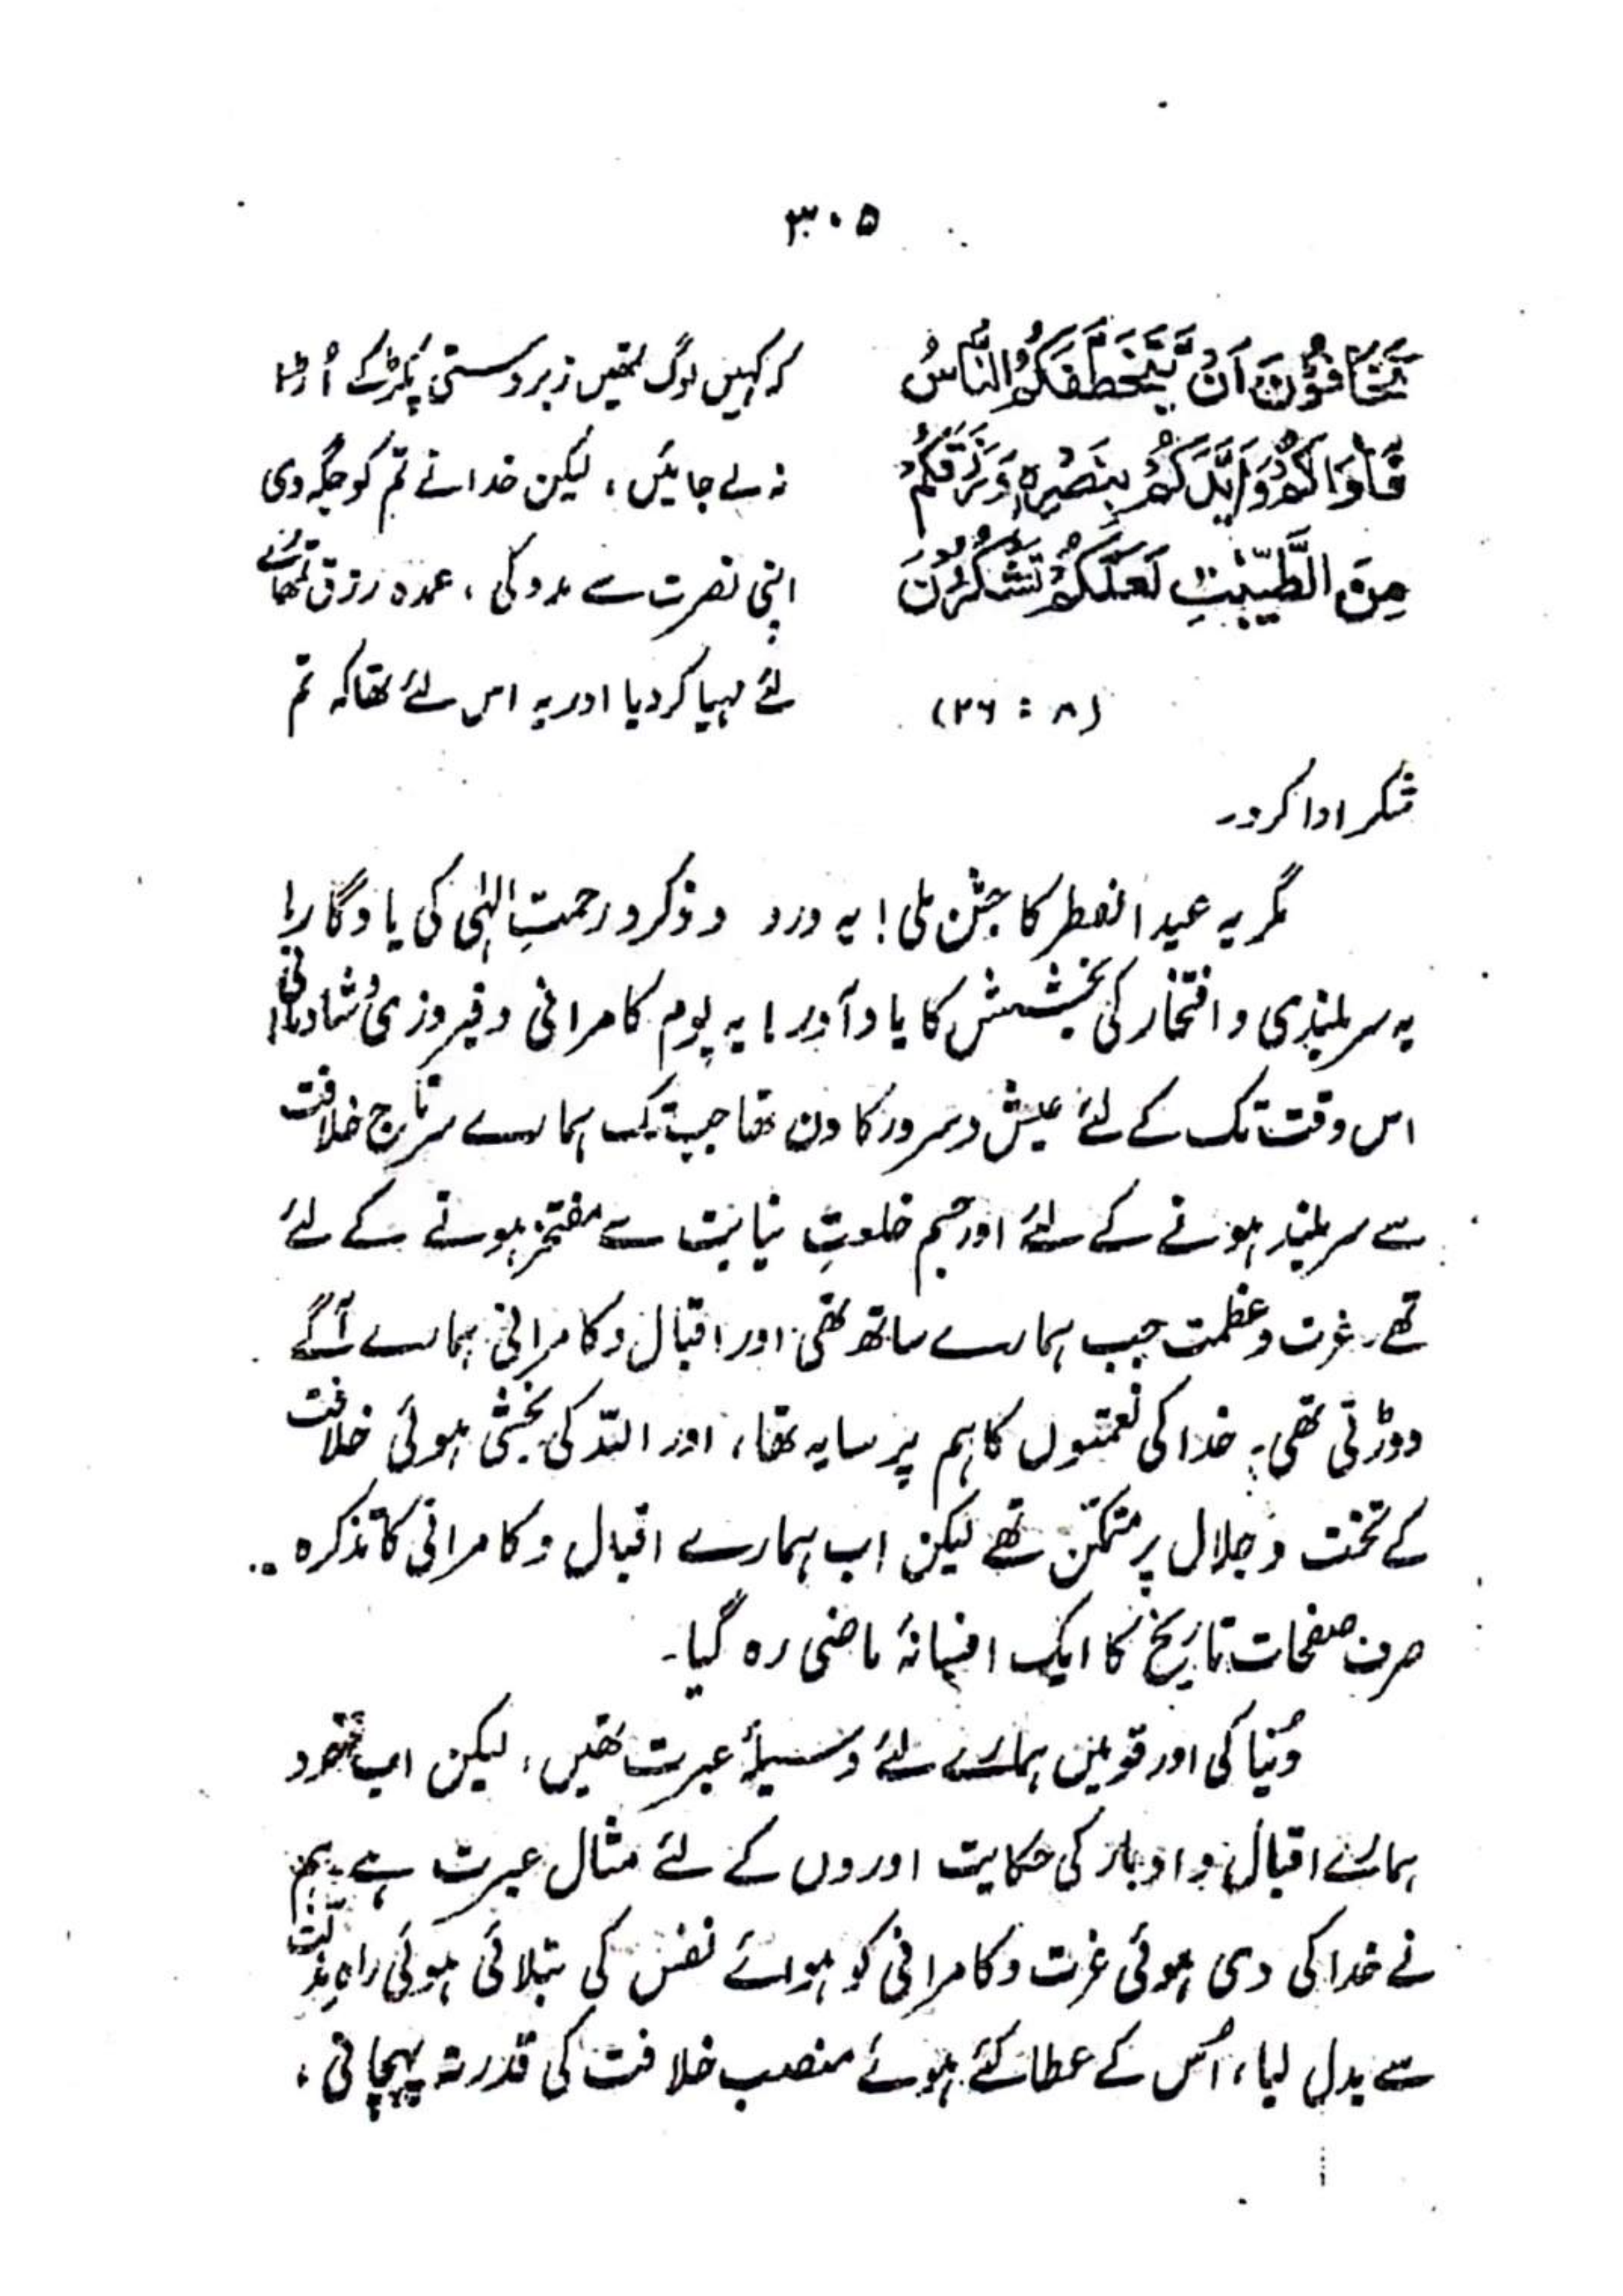 ۳۰۵
تَخَافُوْنَ اَنْ یَّتَخَطَّفَکُمُ النَّاسُ
فَاٰوٰاکُمْ وَاَیَّدَکُمْ بِنَصْرِہٖ وَرَزَقَکُمْ
مِنَ الطَّیِّبٰتِ لَعَلَّکُمْ تَشْکُرُوْنَ
(۸ : ۲۶)
کہ کہیں لوگ تمھیں زبردستی پکڑ کے اُڑا
نہ لے جائیں، لیکن خدا نے تم کو جگہ دی
اپنی نصرت سے مدد کی، عمدہ رزق تمھارے
لئے مہیا کر دیا اور یہ اس لئے تھا کہ تم
شکر ادا کرو۔
مگر یہ عید الفطر کا جشن ملی! یہ ورد و ذکر و رحمتِ الٰہی کی یادگار!
یہ سربلندی و افتخار کی بخشش کا یاد آور! یہ یوم کامرانی و فیروزی و شادمانی!
اس وقت تک کے لئے عیش و سرور کا دن تھا جب تک ہمارے سر تاج خلافت
سے سربلند ہونے کے لئے اور جسم خلعتِ نیابت سے مفتخر ہونے کے لئے
تھے۔ عزت و عظمت جب ہمارے ساتھ تھی اور اقبال و کامرانی ہمارے آگے
دوڑتی تھی۔ خدا کی نعمتوں کا ہم پر سایہ تھا، اور اللہ کی بخشی ہوئی خلافت
کے تخت و جلال پر متمکن تھے لیکن اب ہمارے اقبال و کامرانی کا تذکرہ
صرف صفحات تاریخ کا ایک افسانۂ ماضی رہ گیا۔
دُنیا کی اور قومیں ہمارے لئے وسیلۂ عبرت تھیں، لیکن اب خود
ہمارے اقبال و ادبار کی حکایت اوروں کے لئے مثال عبرت ہے۔ ہم
نے خدا کی دی ہوئی عزت و کامرانی کو ہوائے نفس کی بتلائی ہوئی راہِ مذلّت
سے بدل لیا، اُس کے عطا کئے ہوئے منصب خلافت کی قدر نہ پہچانی،